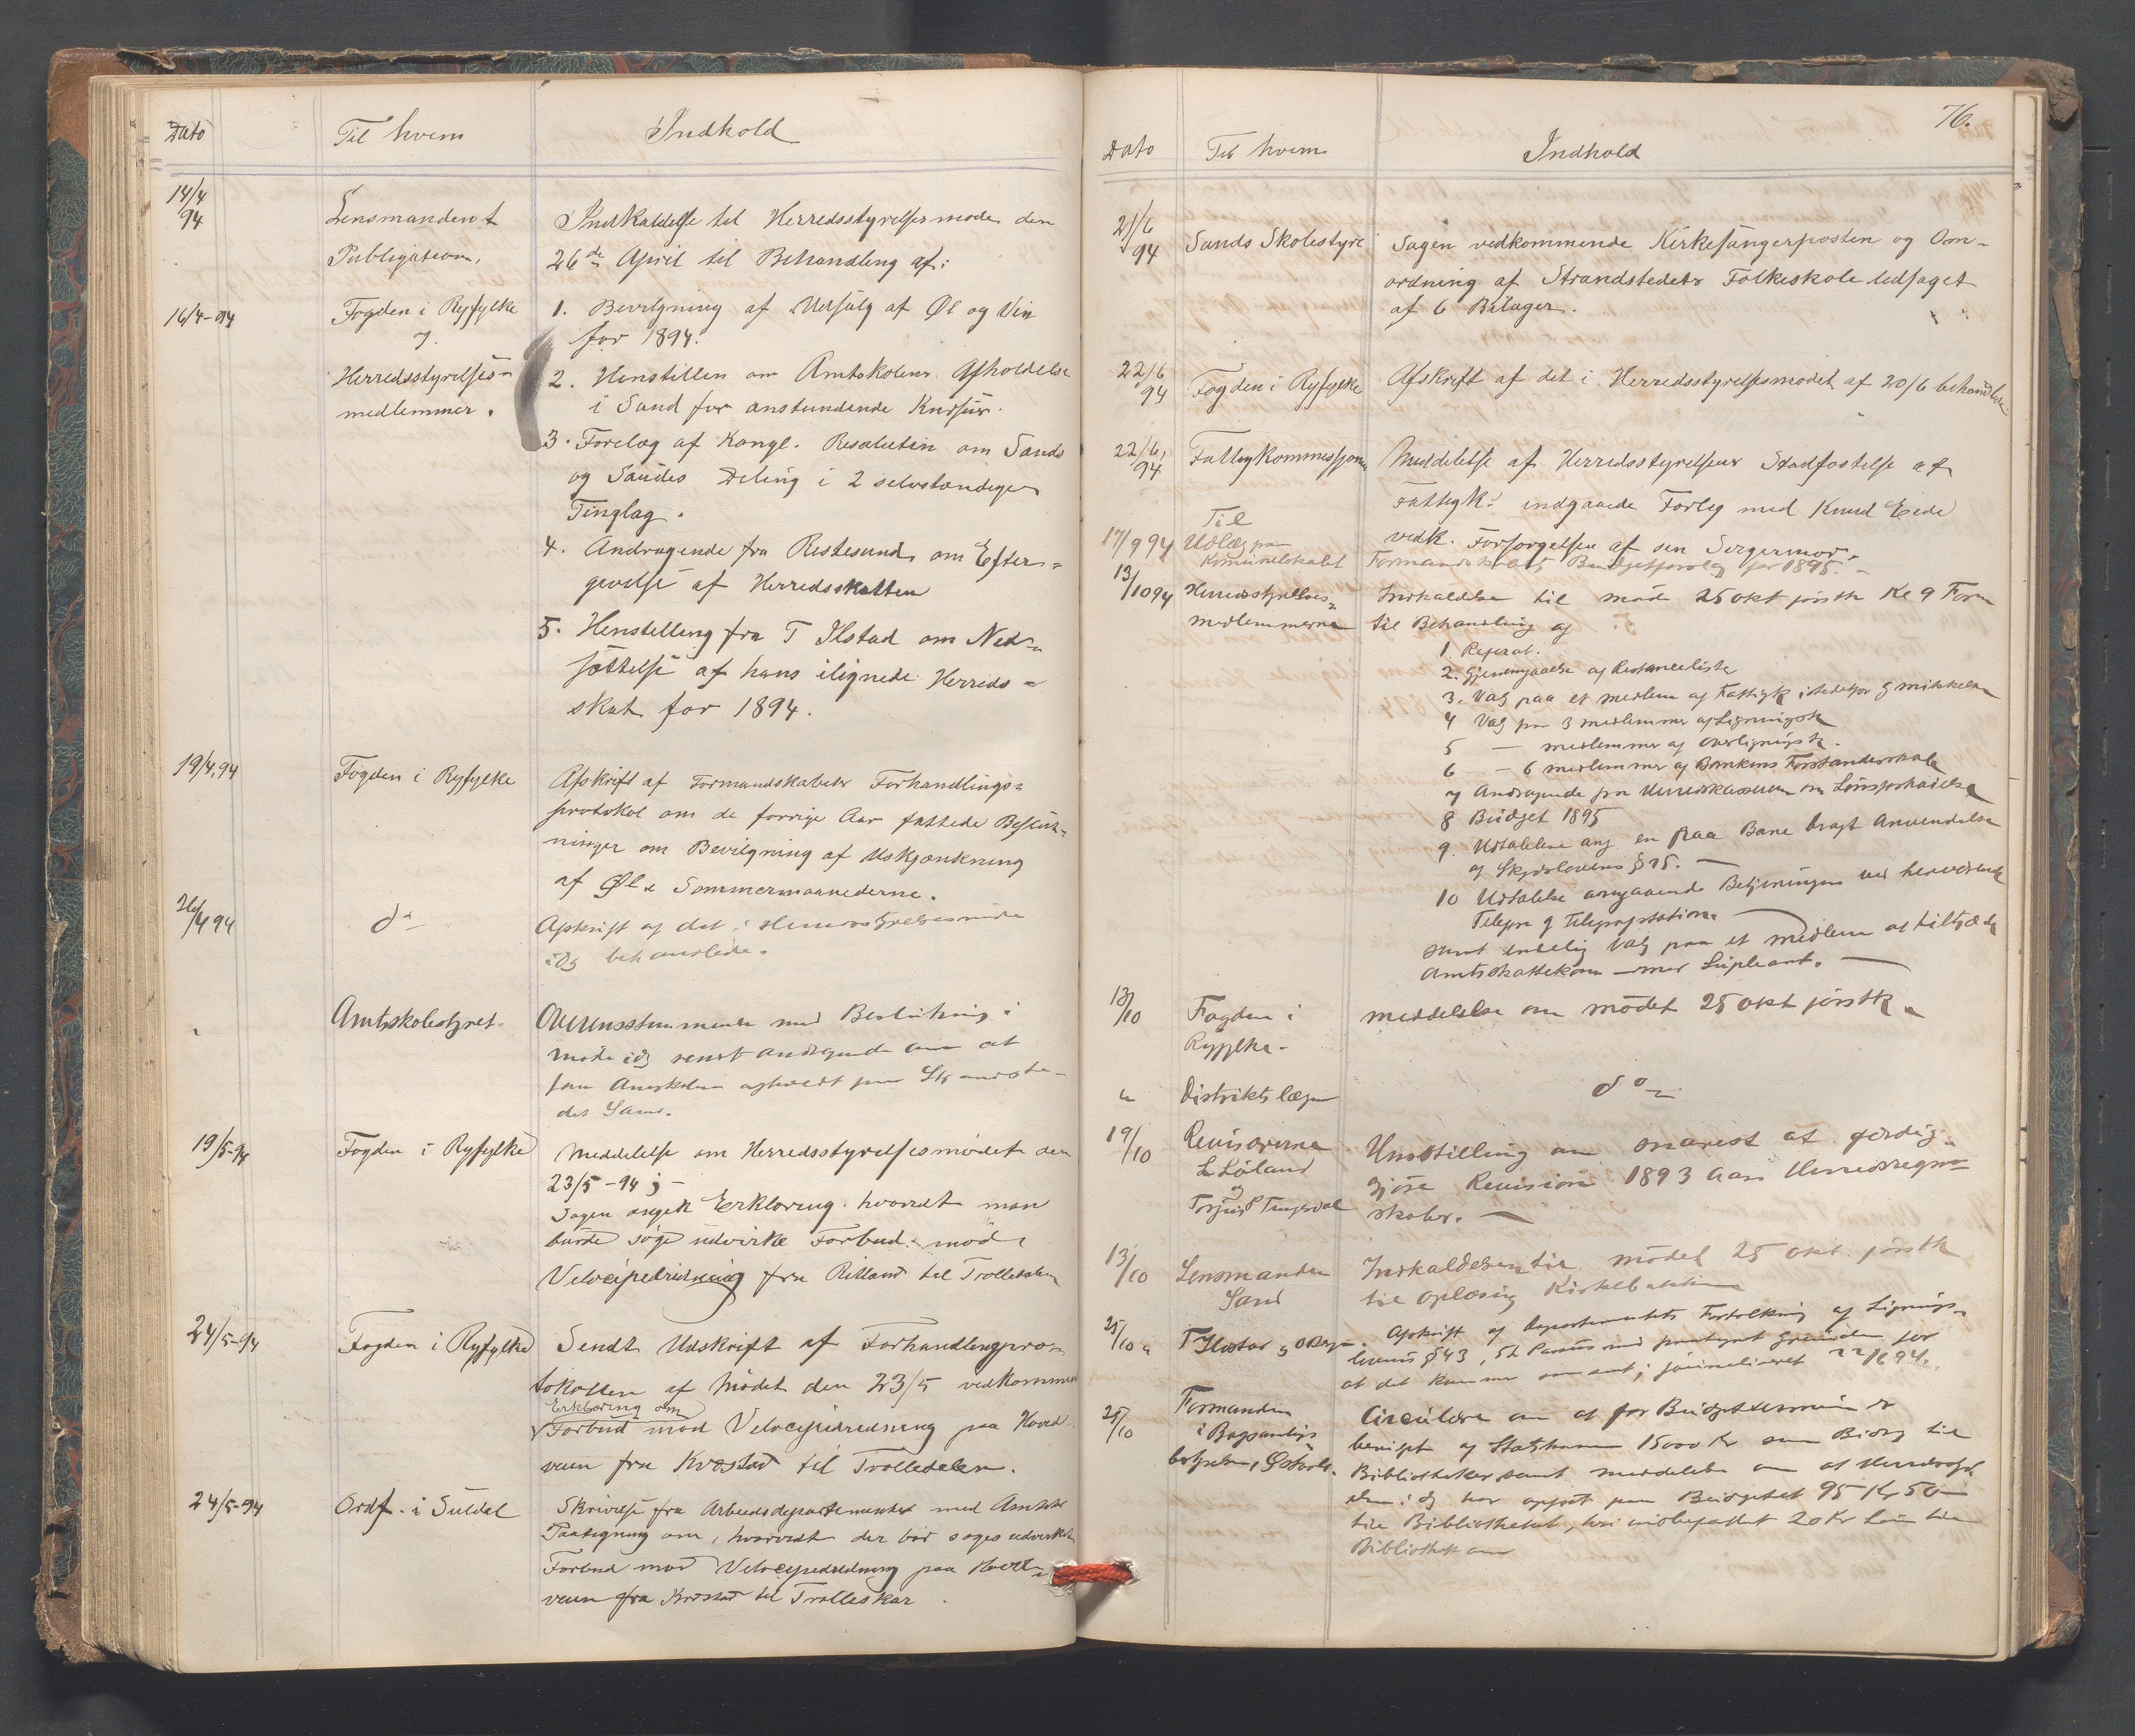 Dato Til hvem Indhold
14/4 94 Lensmanden t Indkaldelse til Herredsstyrelsesmøde den
Publigation. 26de April til Behandling af:
16/4-94 Fogden i Ryfylke 1. Bevilgning af Udsalg af Øl og Vin
for 1894.
Herredsstyrelses- 2. Henstillen om Amtskolens Afholdelse
medlemmer. i Sand for anstundende Kursus.
3. Forelæg af Kongl. Resolutin om Sands
og Saudes Deling i 2 selvstændige
Tinglag.
4. Andragende fra om Efter-
givelse af Herredsskatten
5. Henstelling fra T Ilstad om Ned-
sættelse af hans ilignede Herreds-
skat for 1894.
19/4,94 Fogden i Ryfylke Afskrift af Formandskabets Forhandlings-
protokol om de forrige Aar fattede Beslut-
ninger om Bevilgning af Udskjænkning
af Øl i Sommermaanederne.
26/4 94 do Afskrift af det i Herredsstyrelsesmöde
idg behandlede.
" Amtskolestyret. Overensstemmende med Beslutning i
möde idg sendt andragende om at
faa Amtskolen afholdt paa Strandste-
det Sand.
19/5-94 Fogden i Ryfylke Meddelelse om Herredsstyrelsesmödet den
23/5-94 j-
Sagen angck Erklæring hvorvidt man
burde söge udvirke Forbud mod
Velocipedridning fra Ritland til Trolledalen
24/5-94 Fogden i Ryfylke Sendt Udskrift af Forhandlingspro-
tokollen af Mödet den 23/5 vedkommen
Erklæring om
Forbud mod Velocipedridning paa Hoved-
veien fra Kvæstad til Trolledalen.
24/5-94 Ordf. i Suldal Skrivelse fra Arbeidsdepartementet med Amtets
Paategning om, hvorvidt der bör söges udvirket
Forbud mod Velocipedridning paa Hoved-
veien fra Kvæstad til Trolleskar
76.
Dato Til hvem Indhold
21/6 94 Sands Skolestyre Sagen vedkommende Kirkesangerposten og Om-
ordning af Strandstedets Folkeskole ledsaget
af 6 Bilager.
22/6 94 Fogden i Ryfylke Afskrift af det i Herredsstyrelsesmödet af 20/6 behandlede
22/6, 94 Fattigkommissjonen Meddelelse af Herredsstyrelsens Stadfæstelse af
Fattigk. indgaaede Forlig med Knud Eide
vedk. Forsørgelsen af sin Svigermor.
Til
17/9 94 Udlæg paa
Komunelokalet Formandskabets Budgetforslag for 1895.
13/10 94 Herredsstyrelses- Indkaldelse til möde 25 okt förstk Kl 9 Form
medlemmerne til Behandling af
1. Referat.
2. Gjennemgaaelse af Restanceliste
3. Valg paa et medlem af Fattigk istedetfor G Mikkelsen
4 Valg paa 3 medlemmer af Ligningsk
5 — medlemmer af Overligningsk.
6 — 6 medlemmer af Bankens Forstanderskab
7 Andragende fra Herredskasseren om Lönsforhöielse
8 Budget 1895
9. Udtalelse ang. en paa Bane bragt Anvendelse
af Skydslovens § 15. —
10 Udtalelse angaaende Betjeningen ved herværende
Telefon & Telegrafstation. —
samt endelig Valg paa et medlem at tiltræde
Amtsskattekom — med Supleant. —
13/10 Fogden i meddelelse om mödet 25 okt förstk.
Ryfylke.
" Distriktslægen do
19/10 Revisorerne Henstilling om snarest at færdig-
L. Löland gjöre Revision 1893 Aars Herredsregn-
og
Torjus T Tengesdal skaber. —
13/10 Lensmanden Indkaldelsen til mödet 25 okt. förstk
Sand til Oplæsning Kirkebakken
25/10 Afskrift af Departementets Fortolkning af Lignings-
lovens § 43, 5te Passus med paategnet Grunden for
at det kommer saa sent; journaliseret 22/6 94.
25/10 Formanden Circulære om at for Budgetterminen er
i Bogsamligs- bevilget af Statskassen 15000 Kr som Bidrag til
bestyrelsen, Bibliotheker samt meddelelse om at Herredsstyr
elsen idg har opført paa Budgettet 95 Kr 50
til Bibliotheket, heri indbefattet 20 Kr Lön til
Bibliothekaren